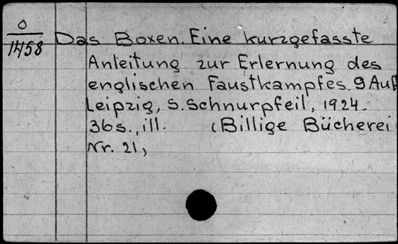 0
1458
Das Boxen. Eine kurzgefasste
Anleitung zur Erlernung des
englischen Faustkampfes. 9 Aufl
Leipzig, S. Schnurpfeil, 1924.
36s., ill. (Billige Bücherei
Nr. 21,